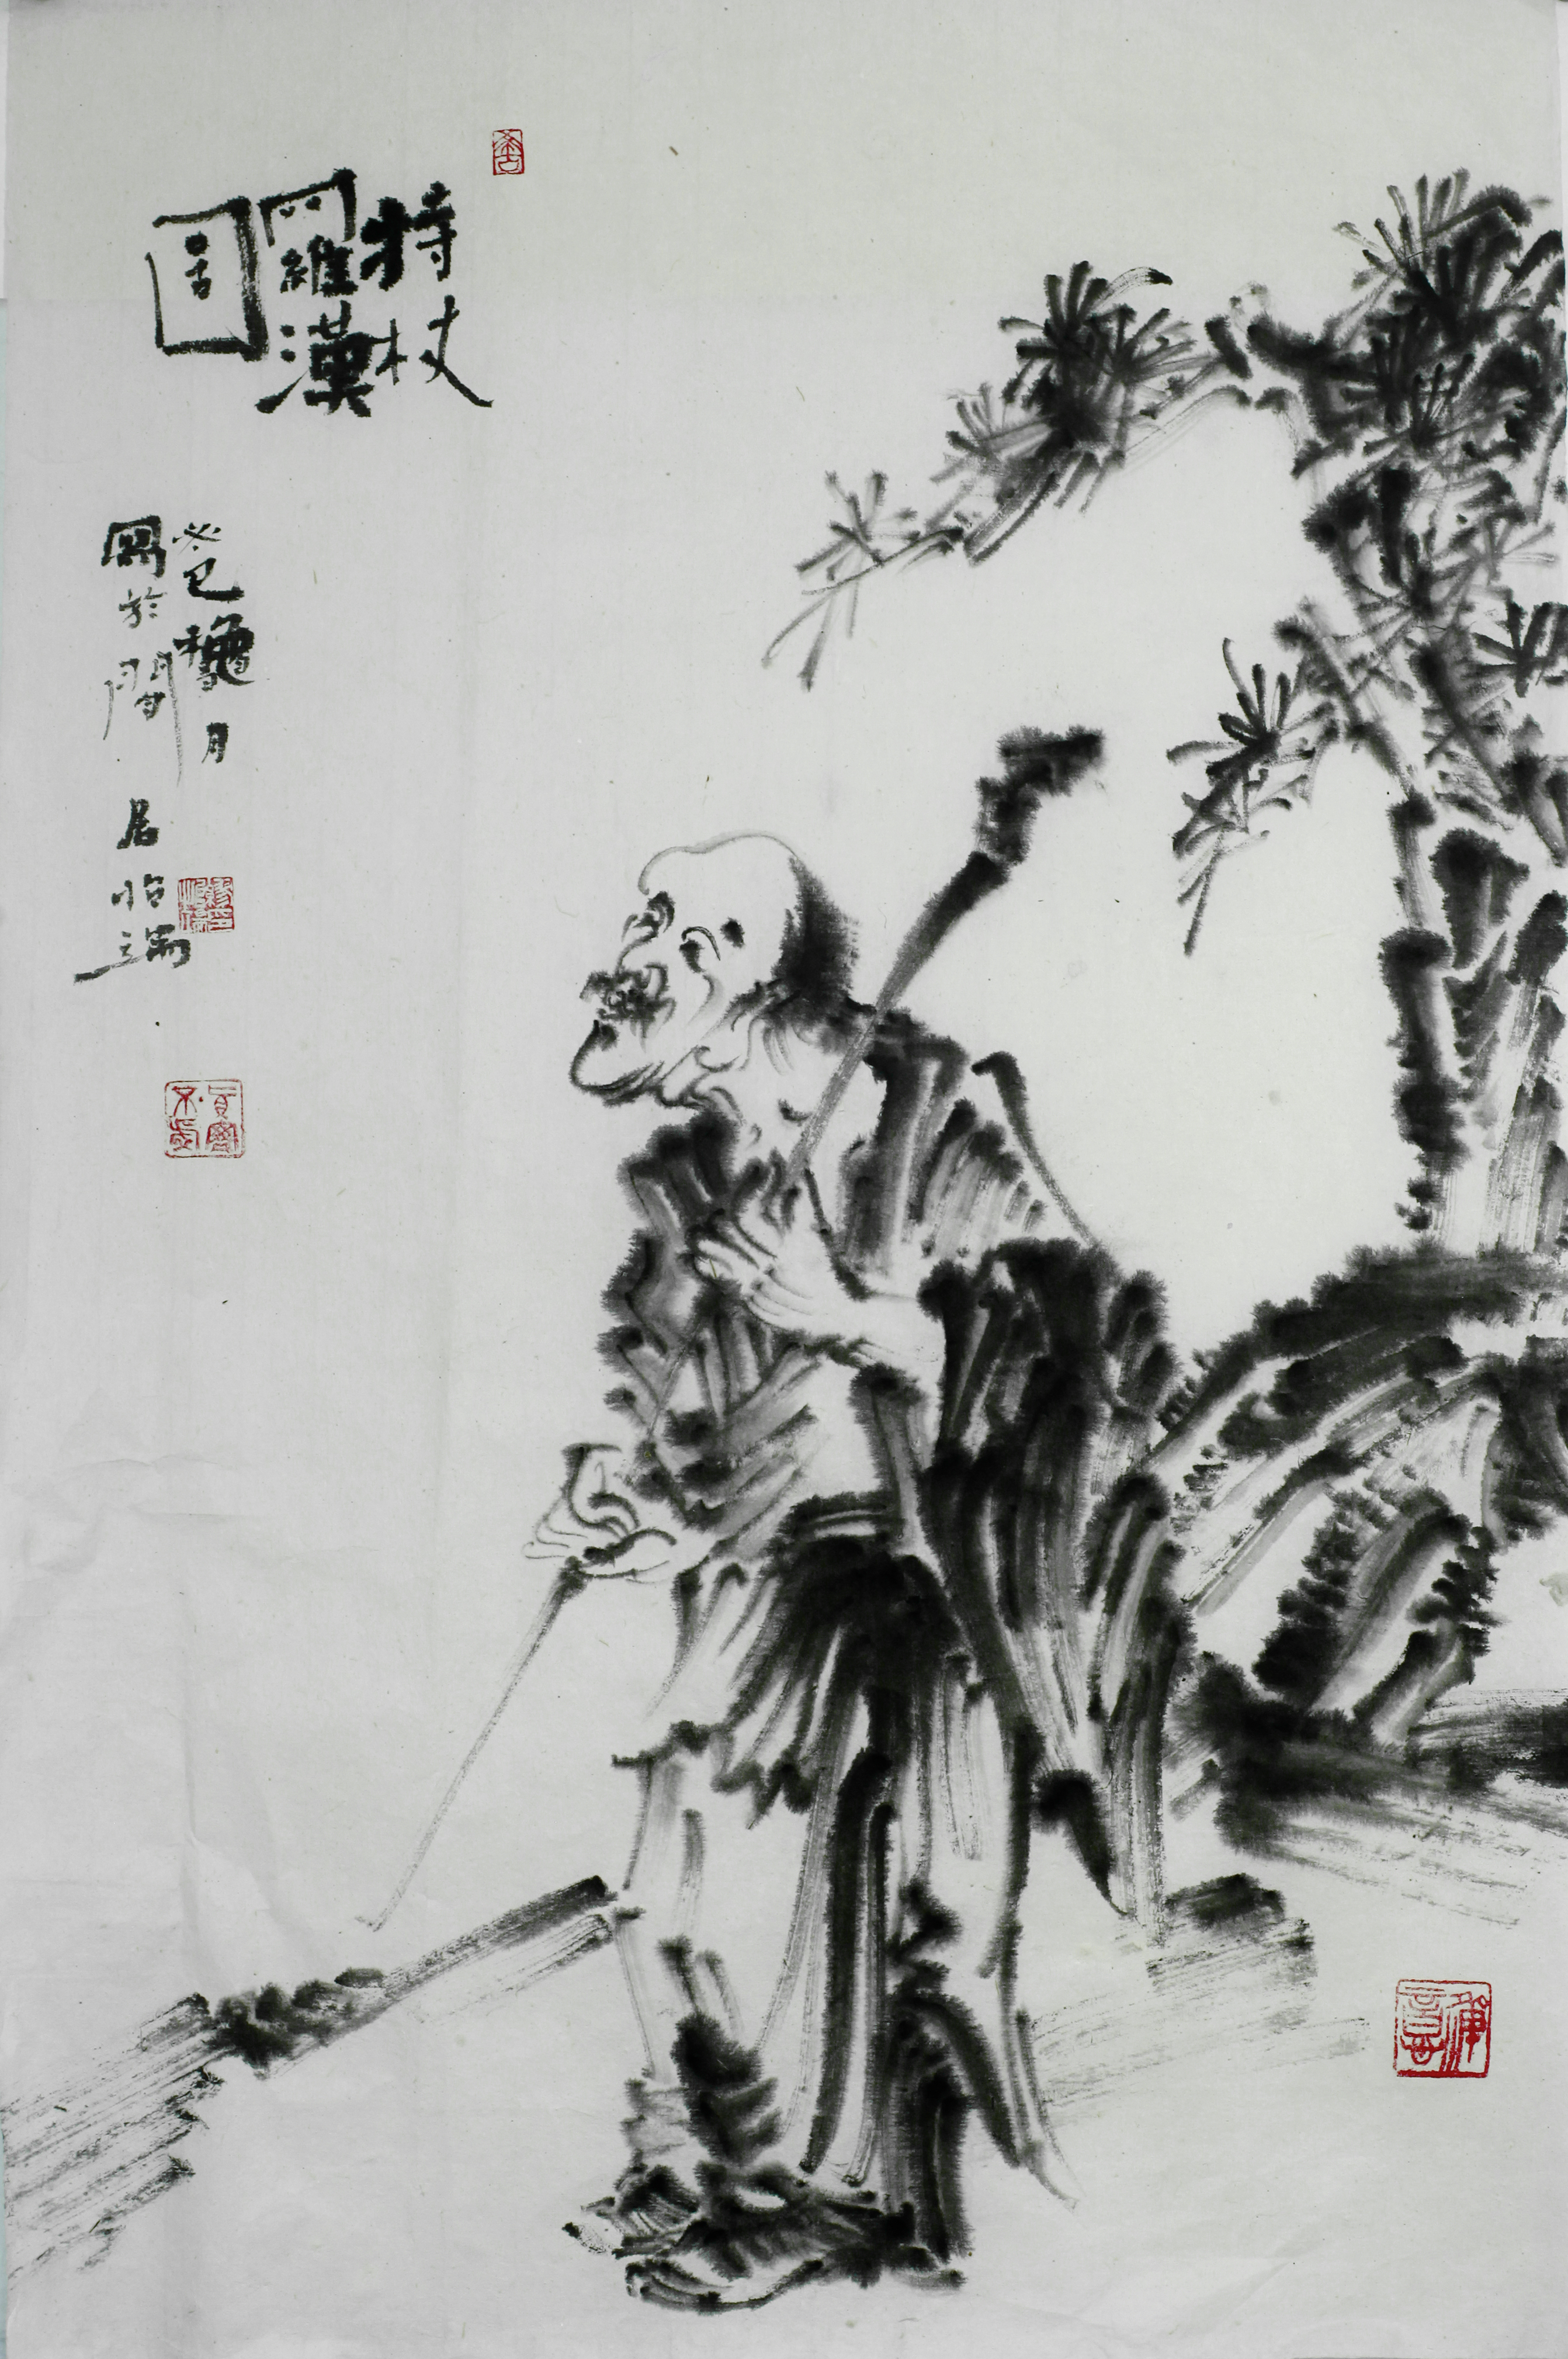 持杖
羅漢
圖
癸巳龝月
寫於閒居怡端